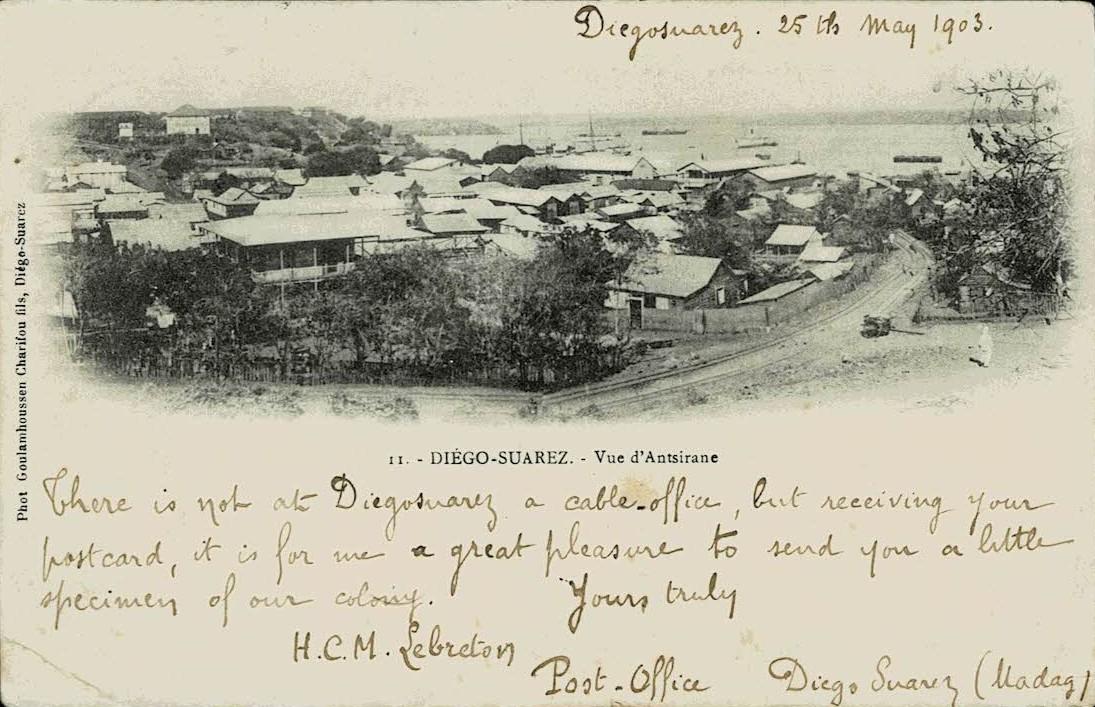 Diegosuarez. 25th May 1903.
Phot Goulamhoussen Charifou fils, Diégo-Suarez
11. - DIÉGO-SUAREZ. - Vue d'Antsirane
There is not at Diegosuarez a cable-office, but receiving your
postcard, it is for me a great pleasure to send you a little
specimen of our colony. Yours truly
H.C.M. Lebreton
Post-Office Diego Suarez (Madag)